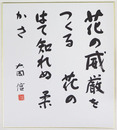 花の威厳を
つくる 花の
はて知れぬ 柔
かさ